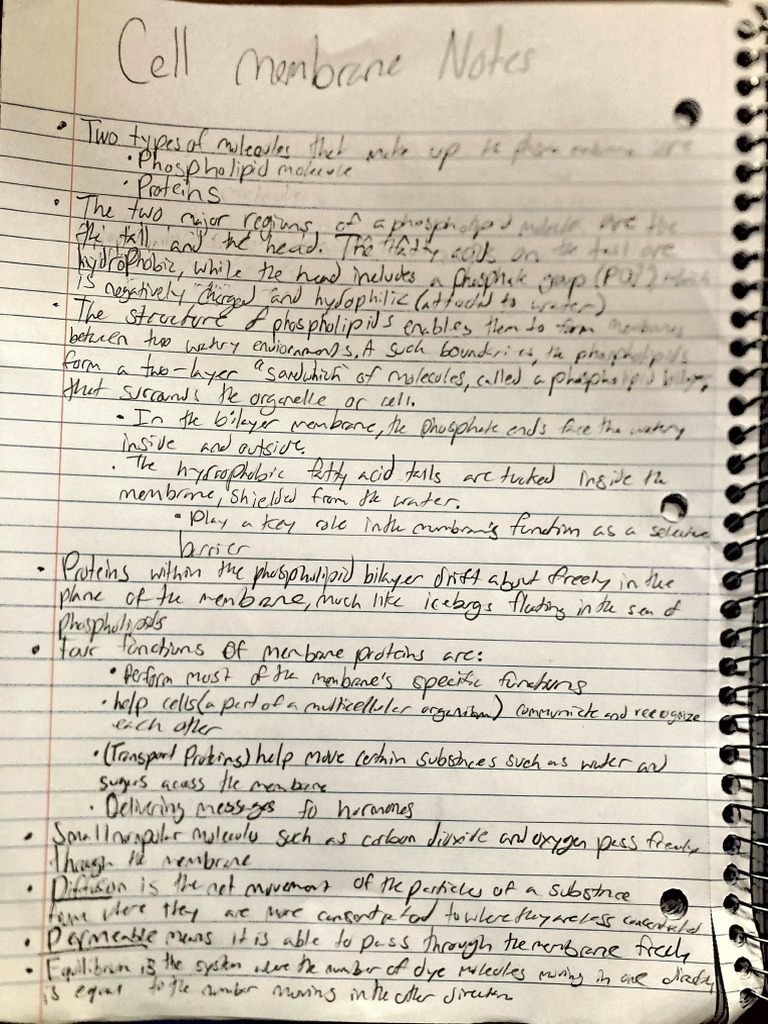 Cell membrane Notes
• Two types of molecules that make up the plasma membrane are
• Phospholipid molecule
• Proteins
• The two major regions of a phospholipid molecule are the
the tail and the head. The fatty acids on the tail are
hydrophobic, while the head includes a phosphate group (PO4) which
is negatively charged and hydophilic (attracted to water)
• The structure of phospholipids enables them to form membranes
between two watery environments. A such boundaries, the phospholipids
form a two-layer "sandwhich" of molecules, called a phospholipid bilayer,
that surrounds the organelle or cell.
• In the bilayer membrane, the phosphate ends face the watery
inside and outside.
• The hydrophobic fatty acid tails are tucked inside the
membrane, shielded from the water.
• Play a key role in the membrane's function as a selective
barrier
• Proteins within the phospholipid bilayer drift about freely in the
plane of the membrane, much like icebergs floating in the sea of
phospholipids
• Four functions of membrane proteins are:
• Perform most of the membrane's specific functions
• help cells (a part of a multicellular organism) communicate and recognize
each other
• (Transport Proteins) help move certain substances such as water and
sugars across the membrane
• Delivering messages to hormones
• Small nonpolar molecules such as carbon dioxide and oxygen pass freely
through the membrane
• Diffusion is the net movement of the particles of a substance
from where they are more consentrated to where they are less concentrated
• Permeable means it is able to pass through the membrane freely
• Equilibrium is the system where the number of dye molecules moving in one direction
is equal to the number moving in the other direction